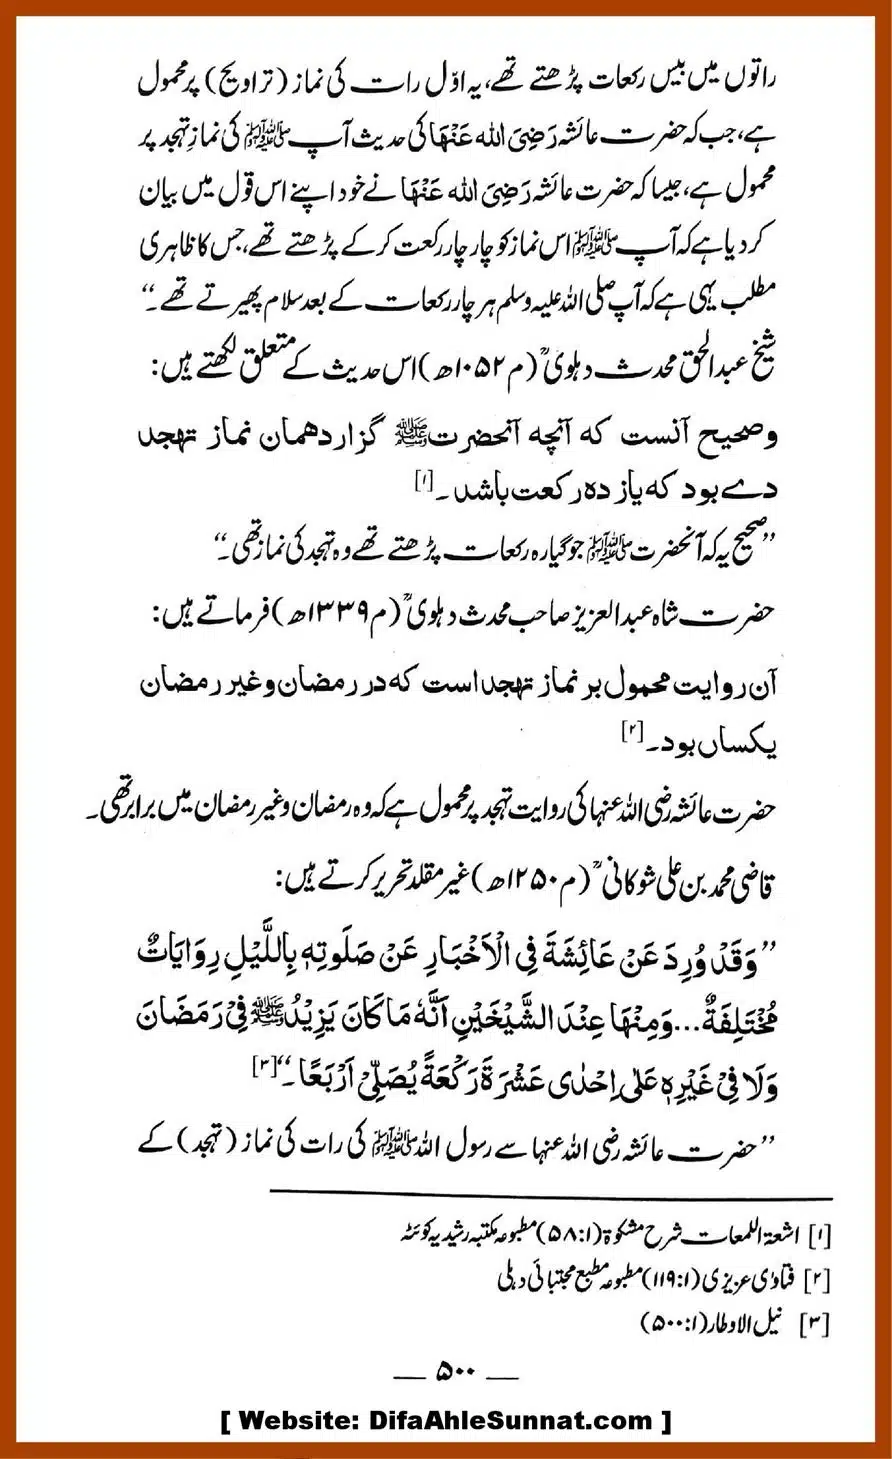 راتوں میں بیس رکعات پڑھتے تھے، یہ اوّل رات کی نماز (تراویح) پر محمول
ہے، جب کہ حضرت عائشہ رَضِیَ اللہ عَنْهَا کی حدیث آپ ﷺ کی نمازِ تہجد پر
محمول ہے، جیسا کہ حضرت عائشہ رَضِیَ اللہ عَنْهَا نے خود اپنے اس قول میں بیان
کر دیا ہے کہ آپ ﷺ اس نماز کو چار چار رکعت کر کے پڑھتے تھے، جس کا ظاہری
مطلب یہی ہے کہ آپ صلی اللہ علیہ وسلم ہر چار رکعات کے بعد سلام پھیرتے تھے۔“
شیخ عبدالحق محدث دہلویؒ (م ۱۰۵۲ھ) اس حدیث کے متعلق لکھتے ہیں:
وصحیح آنست که آنچه آنحضرت ﷺ گزارد همان نماز تهجد
دے بود که یازده رکعت باشد۔[۱]
”صحیح یہ کہ آنحضرت ﷺ جو گیارہ رکعات پڑھتے تھے وہ تہجد کی نماز تھی۔“
حضرت شاہ عبدالعزیز صاحب محدث دہلویؒ (م ۱۳۳۹ھ) فرماتے ہیں:
آن روایت محمول بر نماز تهجد است که در رمضان و غیر رمضان
یکساں بود۔[۲]
حضرت عائشہ رضی اللہ عنہا کی روایت تہجد پر محمول ہے کہ وہ رمضان و غیر رمضان میں برابر تھی۔
قاضی محمد بن علی شوکانیؒ (م ۱۲۵۰ھ) غیر مقلد تحریر کرتے ہیں:
”وَقَدْ وُرِدَ عَنْ عَائِشَةَ فِی الْاَخْبَارِ عَنْ صَلَوتِهٖ بِاللَّیْلِ رِوَایَاتٌ
مُخْتَلِفَةٌ...وَمِنْهَا عِنْدَ الشَّیْخَیْنِ اَنَّهٗ مَا کَانَ یَزِیْدُ ﷺ فِیْ رَمَضَانَ
وَلَا فِیْ غَیْرِهٖ عَلٰی اِحْدٰی عَشْرَةَ رَکْعَةً یُصَلِّیْ اَرْبَعًا۔“[۳]
”حضرت عائشہ رضی اللہ عنہا سے رسول اللہ ﷺ کی رات کی نماز (تہجد) کے
[۱] اشعۃ اللمعات شرح مشکوۃ (۵۸:۱) مطبوعہ مکتبہ رشیدیہ کوئٹہ
[۲] فتاوٰی عزیزی (۱۱۹:۱) مطبوعہ مطبع مجتبائی دہلی
[۳] نیل الاوطار (۵۰۰:۱)
— ۵۰۰ —
[ Website: DifaAhleSunnat.com ]